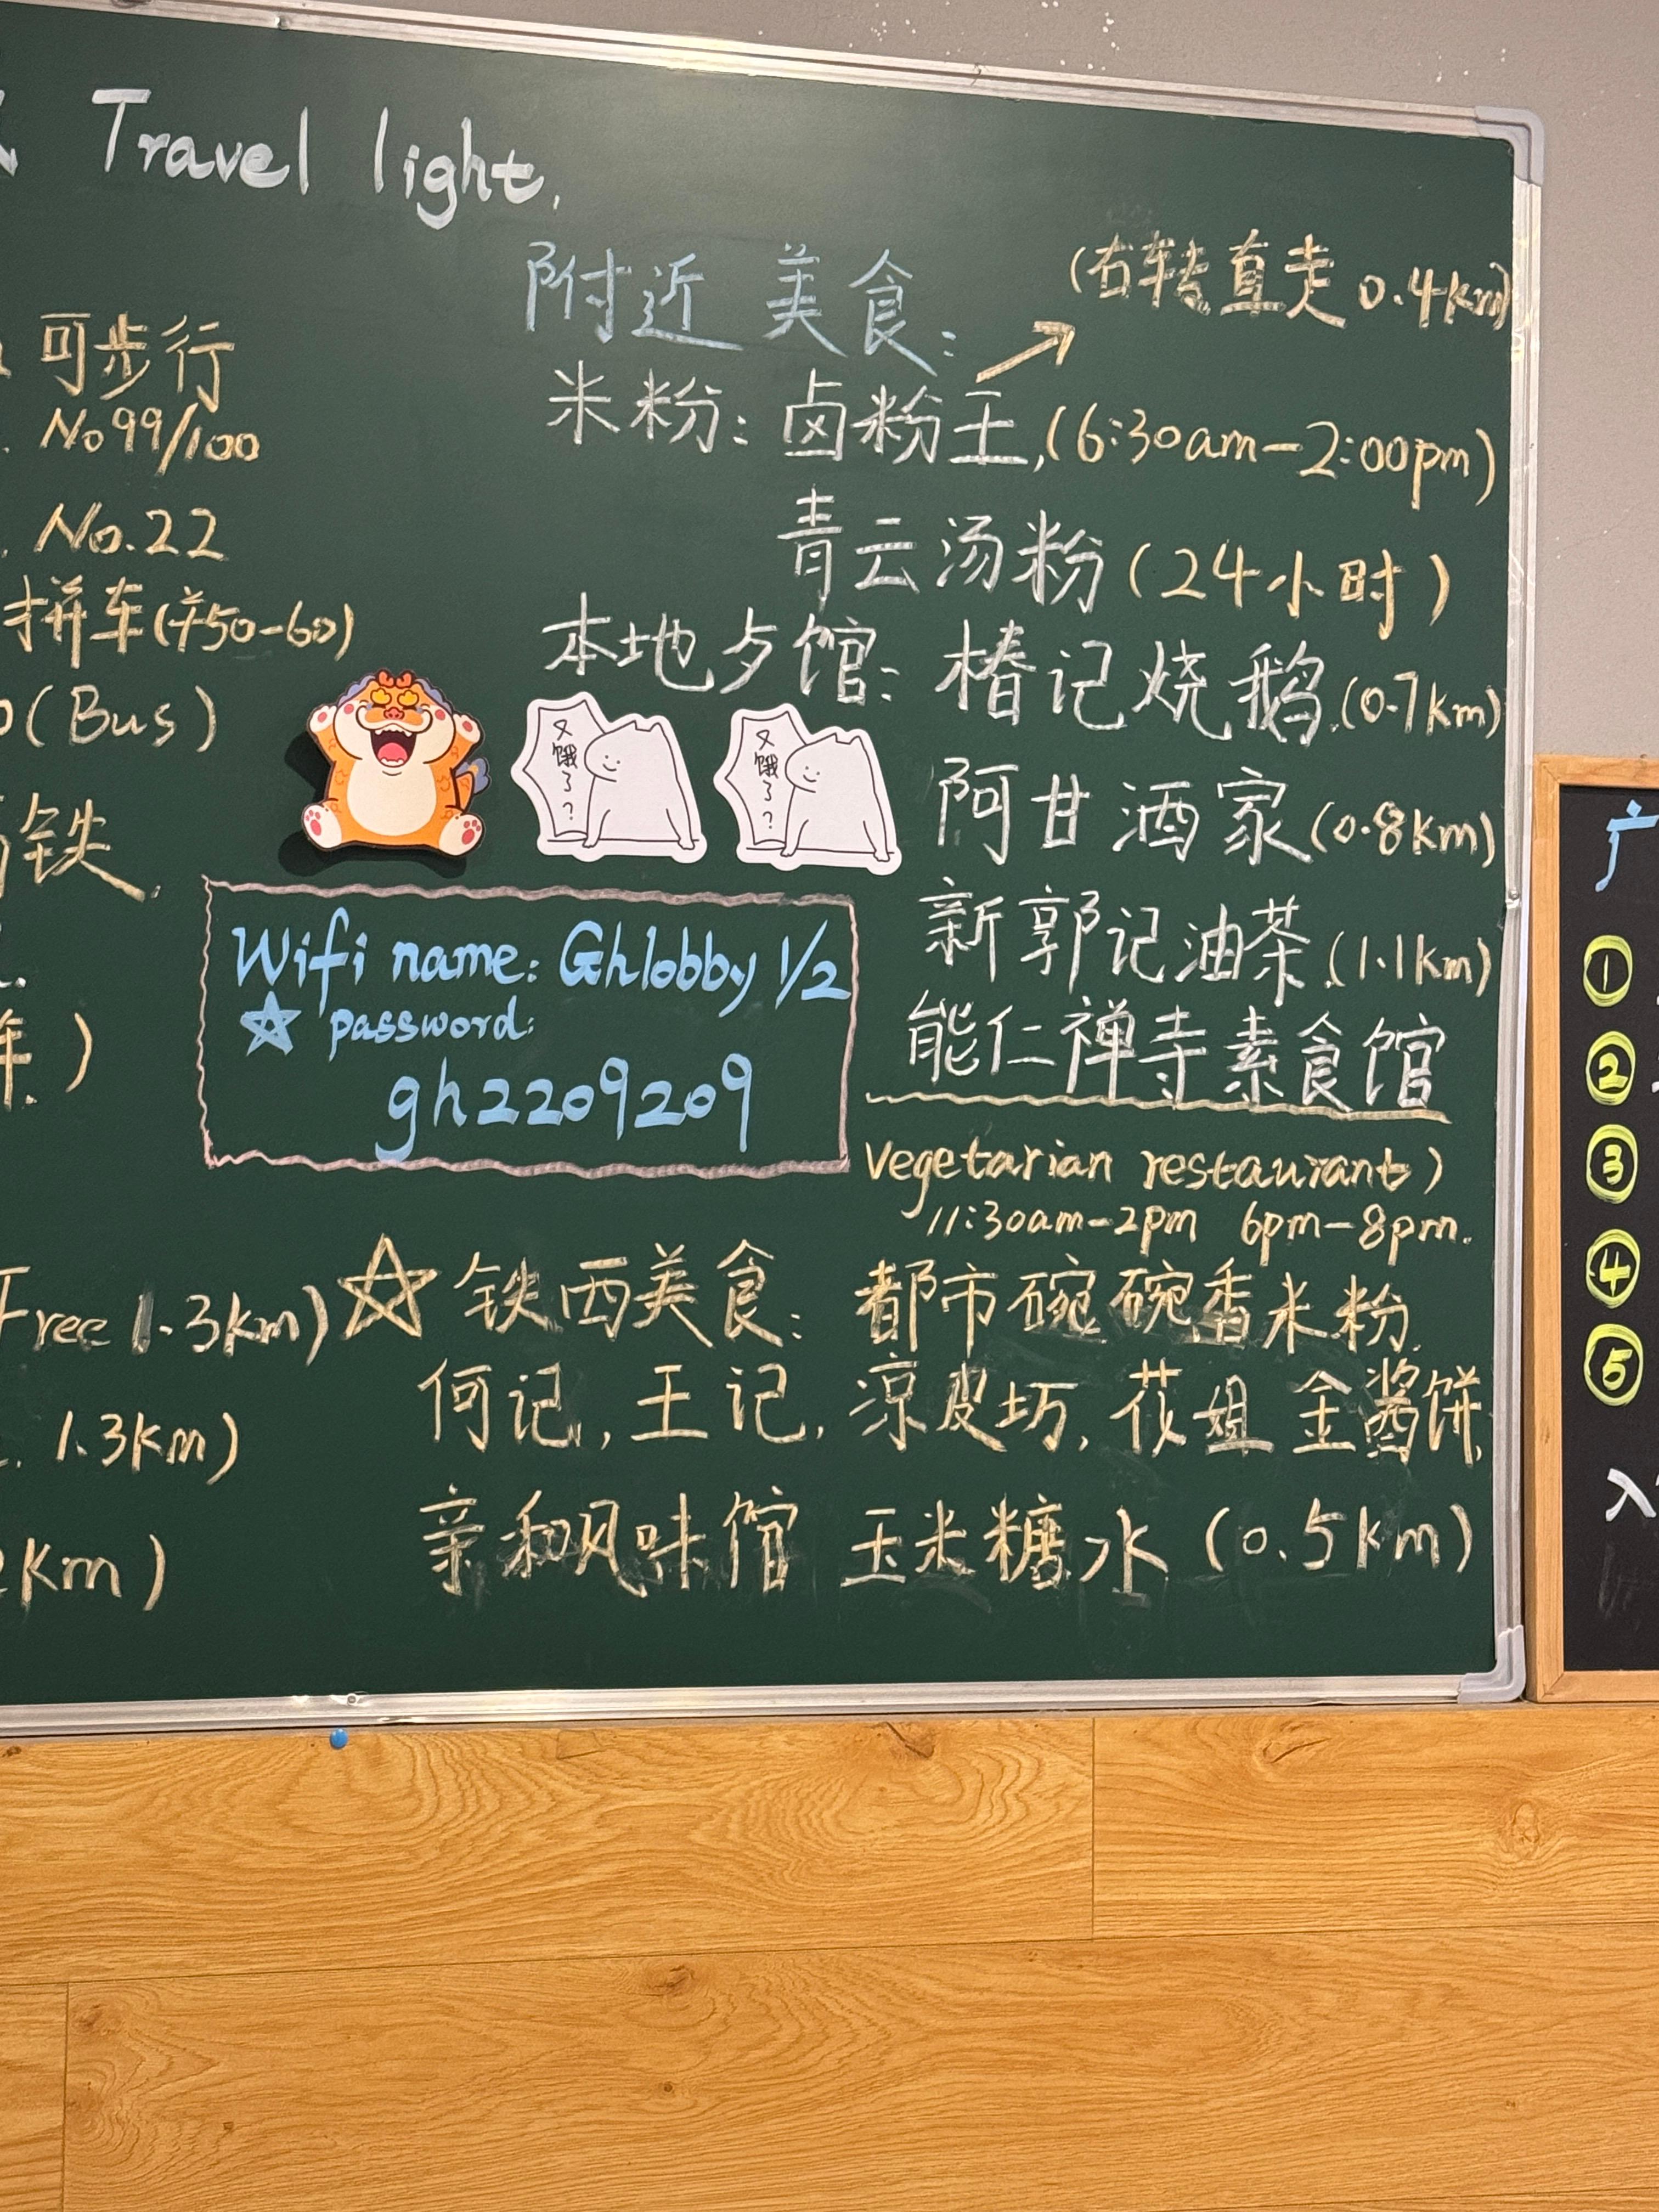 Travel light.
附近美食:
(右转直走 0.4km)
米粉: 卤粉王,(6:30am-2:00pm)
青云汤粉(24小时)
本地歺馆: 椿记烧鹅.(0.7km)
阿甘酒家(0.8km)
新郭记油茶.(1.1km)
能仁禅寺素食馆
vegetarian restaurant)
11:30am-2pm 6pm-8pm.
☆ 铁西美食: 都市碗碗香米粉.
何记, 王记, 凉皮坊, 花姐 金酱饼,
亲和风味馆 玉米糖水 (0.5km)
可步行
No99/100
No.22
拼车(¥50-60)
(Bus)
铁
Free 1.3km)
1.3km)
km)
又饿了?
又饿了?
Wifi name: Ghlobby 1/2
☆ password:
gh2209209
广
①
②
③
④
⑤